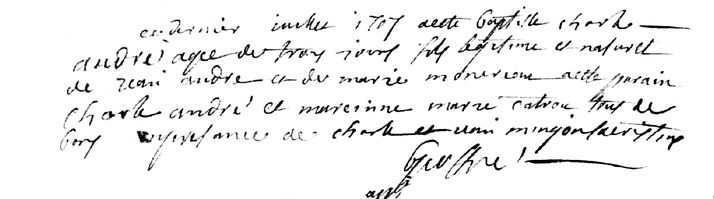 ce dernier juilet 1707 a este baptisée charle
andré agée de troys jours fils legitime et naturel
de jean andre et de marie monereau a esté parain
charle andré et mareinne marie catrou tous de
bors en presance de charle et jean minyon sacristins